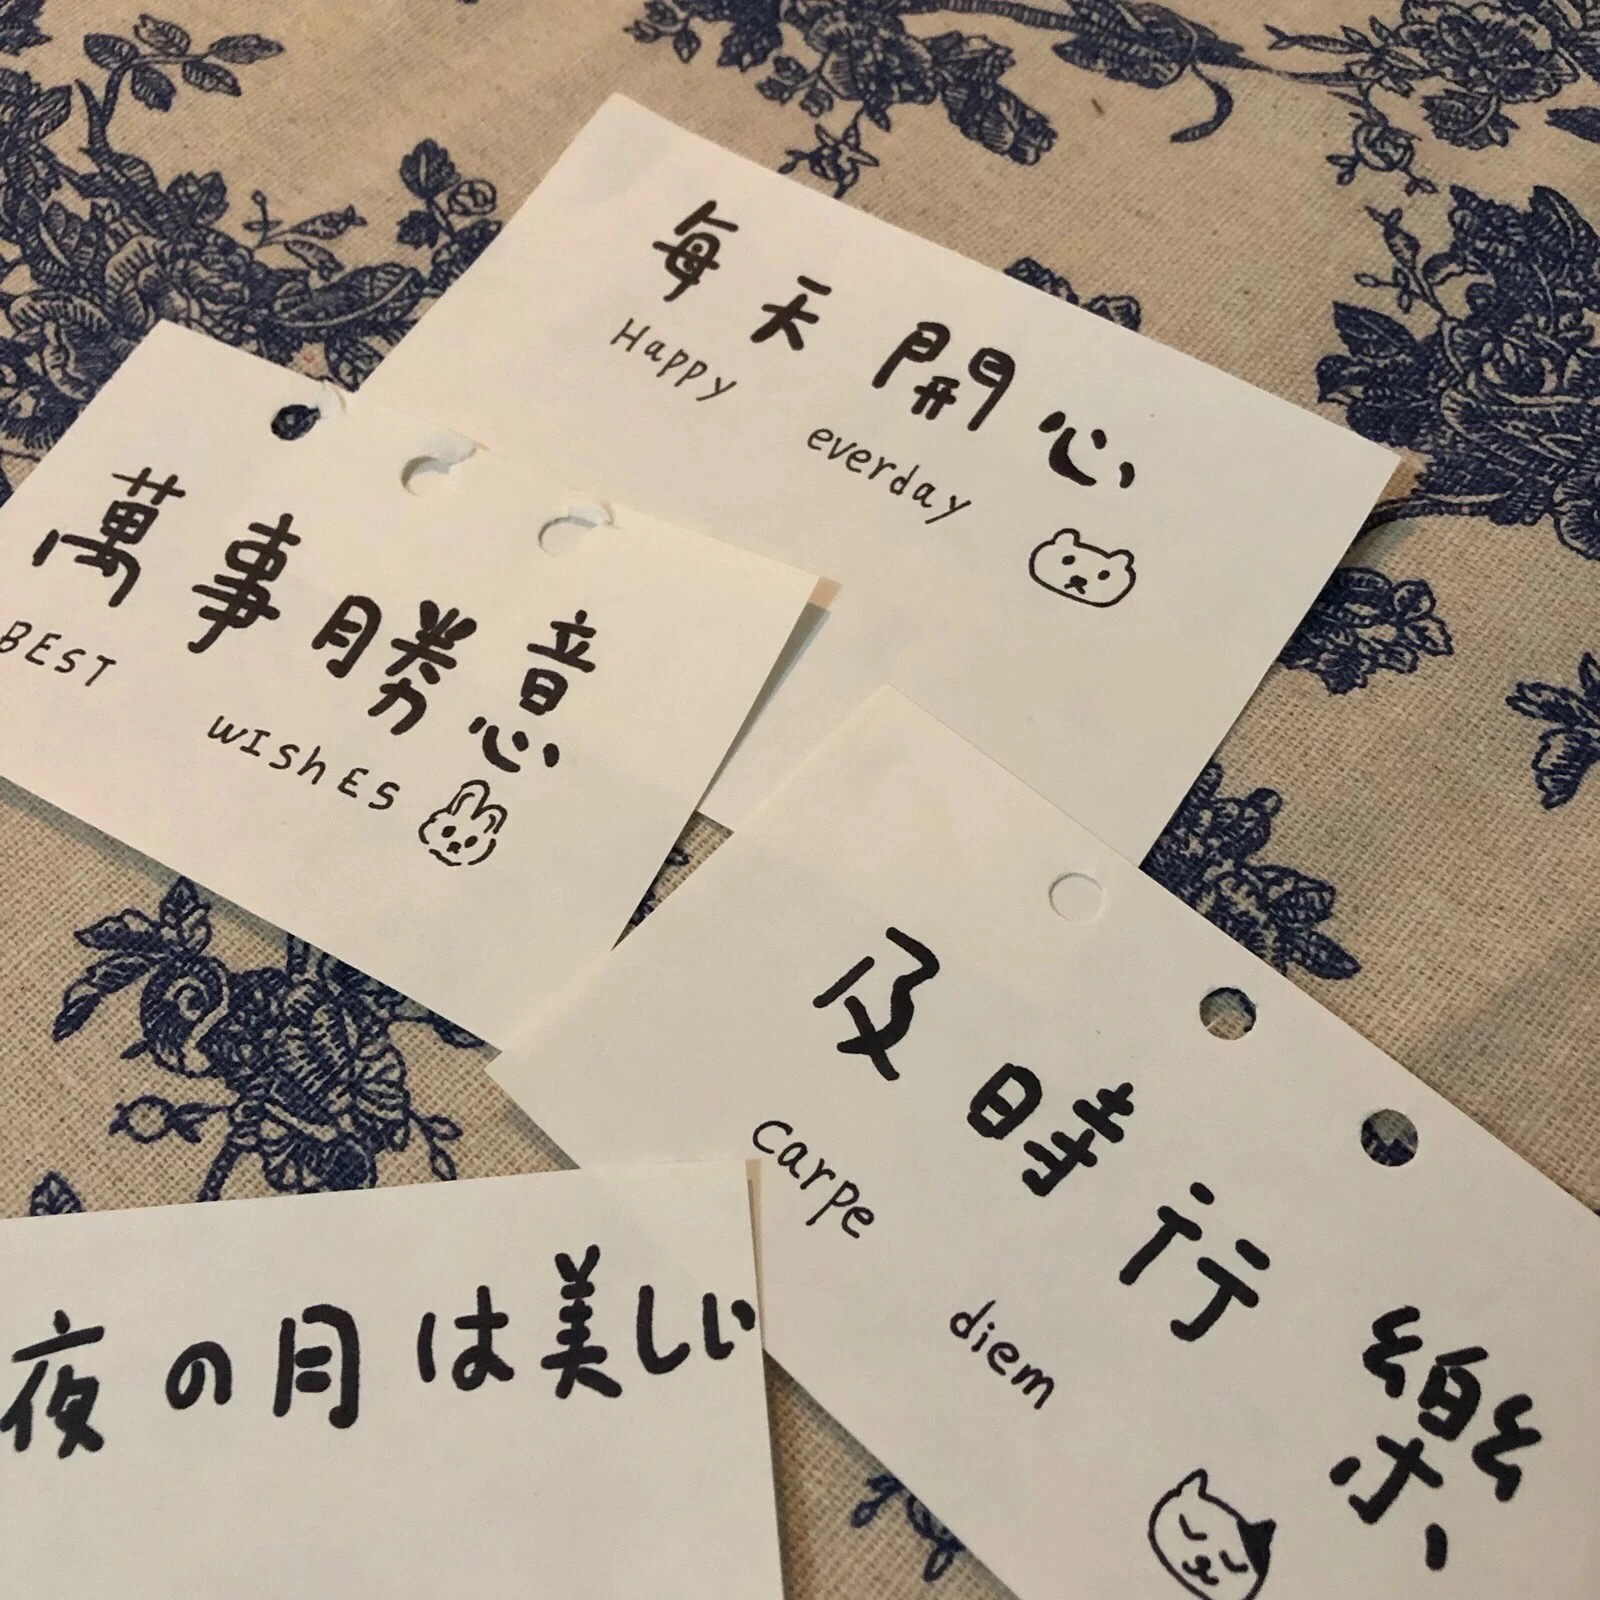 每天開心
Happy everday
萬事勝意
BEST wIshEs
及時行樂
carpe diem
夜の月は美しい